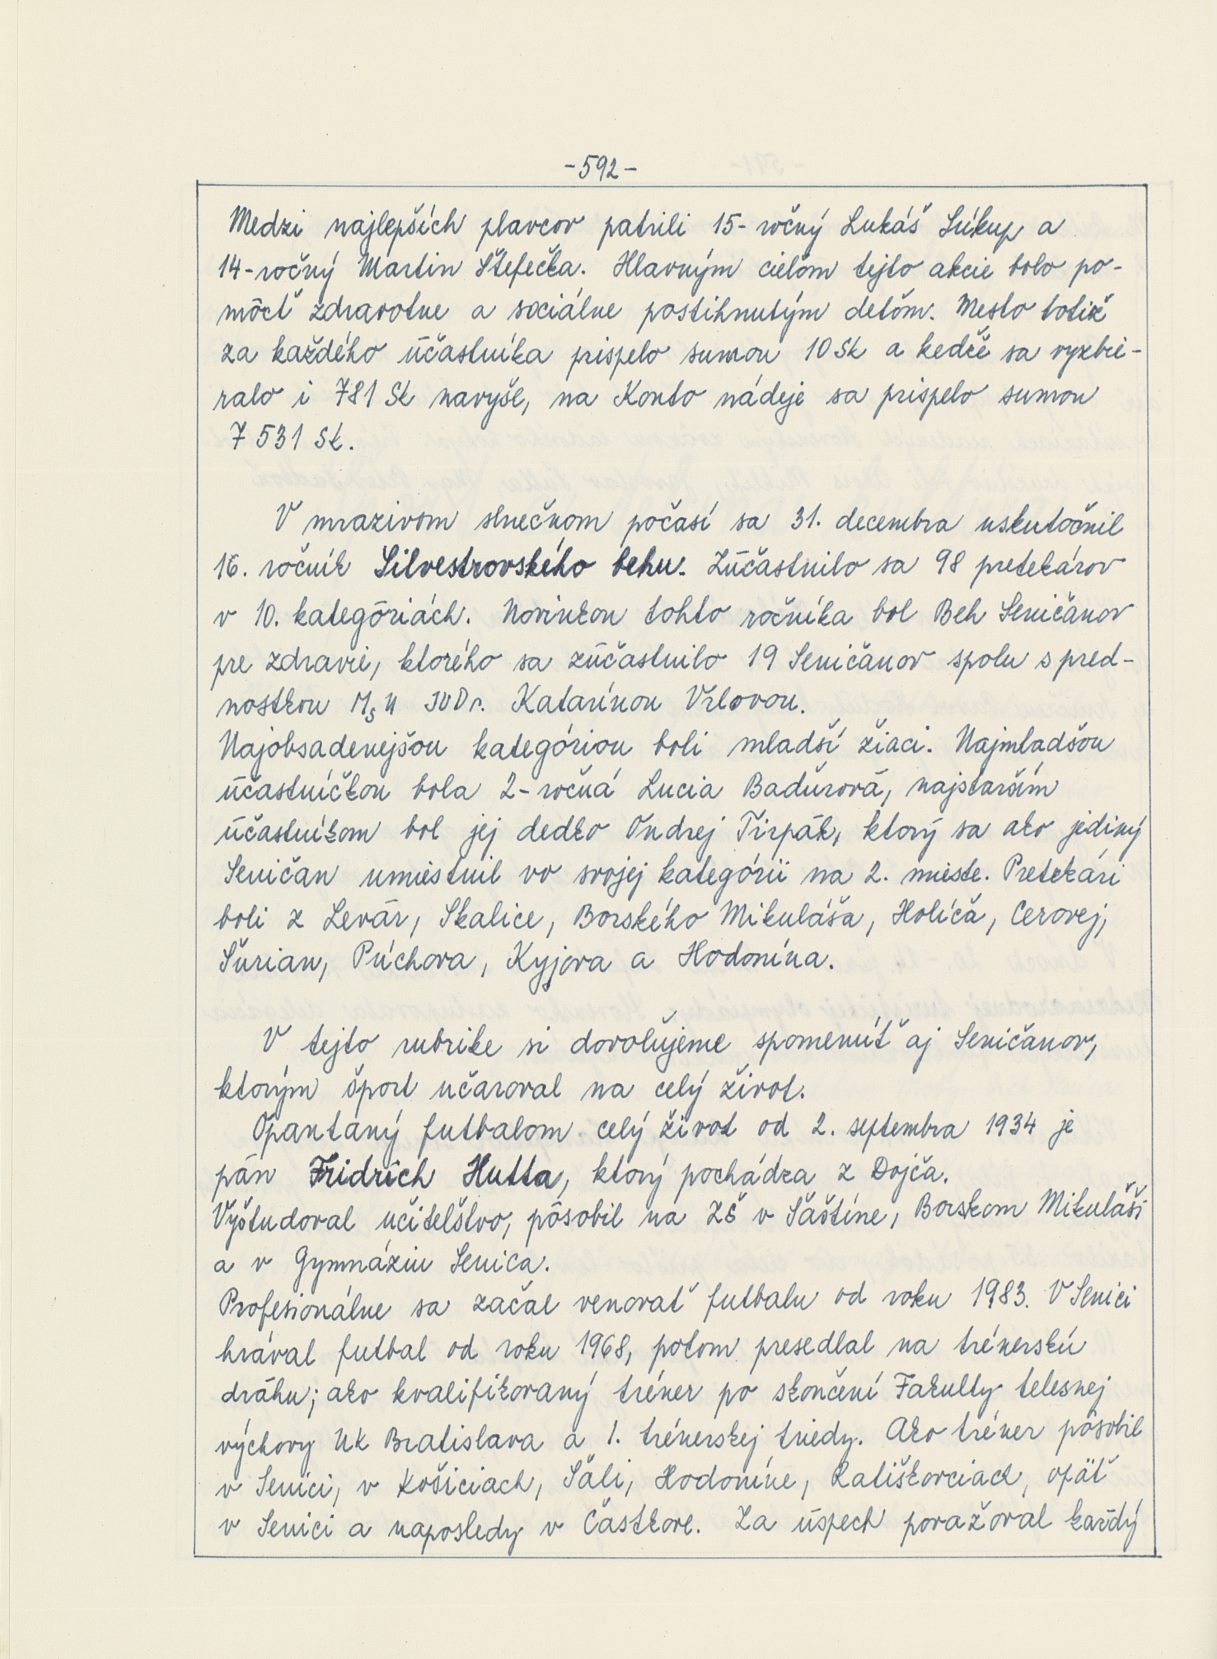 -592-
Medzi najlepších plavcov patrili 15-ročný Lukáš Súkup a
14-ročný Martin Štefečka. Hlavným cieľom tejto akcie bolo po-
môcť zdravotne a sociálne postihnutým deťom. Mesto totiž
za každého účastníka prispelo sumou 10 Sk a keďže sa vyzbie-
ralo i 781 Sk navyše, na Konto nádeje sa prispelo sumou
7 531 Sk.
V mrazivom slnečnom počasí sa 31. decembra uskutočnil
16. ročník Silvestrovského behu. Zúčastnilo sa 98 pretekárov
v 10. kategóriách. Novinkou tohto ročníka bol Beh Seničanov
pre zdravie, ktorého sa zúčastnilo 19 Seničanov spolu s pred-
nostkou MsÚ JUDr. Katarínou Vrlovou.
Najobsadenejšou kategóriou boli mladší žiaci. Najmladšou
účastníčkou bola 2-ročná Lucia Baďurová, najstarším
účastníkom bol jej dedko Ondrej Tirpák, ktorý sa ako jediný
Seničan umiestnil vo svojej kategórii na 2. mieste. Pretekári
boli z Levár, Skalice, Borského Mikuláša, Holíča, Cerovej,
Šurian, Púchova, Kyjova a Hodonína.
V tejto rubrike si dovoľujeme spomenúť aj Seničanov,
ktorým šport učaroval na celý život.
Opantaný futbalom celý život od 2. septembra 1934 je
pán Fridrich Hutta, ktorý pochádza z Dojča.
Vyštudoval učiteľstvo, pôsobil na ZŠ v Šaštíne, Borskom Mikuláši
a v Gymnáziu Senica.
Profesionálne sa začal venovať futbalu od roku 1983. V Senici
hrával futbal od roku 1968, potom presedlal na trénerskú
dráhu; ako kvalifikovaný tréner po skončení Fakulty telesnej
výchovy UK Bratislava a 1. trénerskej triedy. Ako tréner pôsobil
v Senici, v Košiciach, Šali, Hodoníne, Ratiškovciach, opäť
v Senici a naposledy v Častkove. Za úspech považoval každý